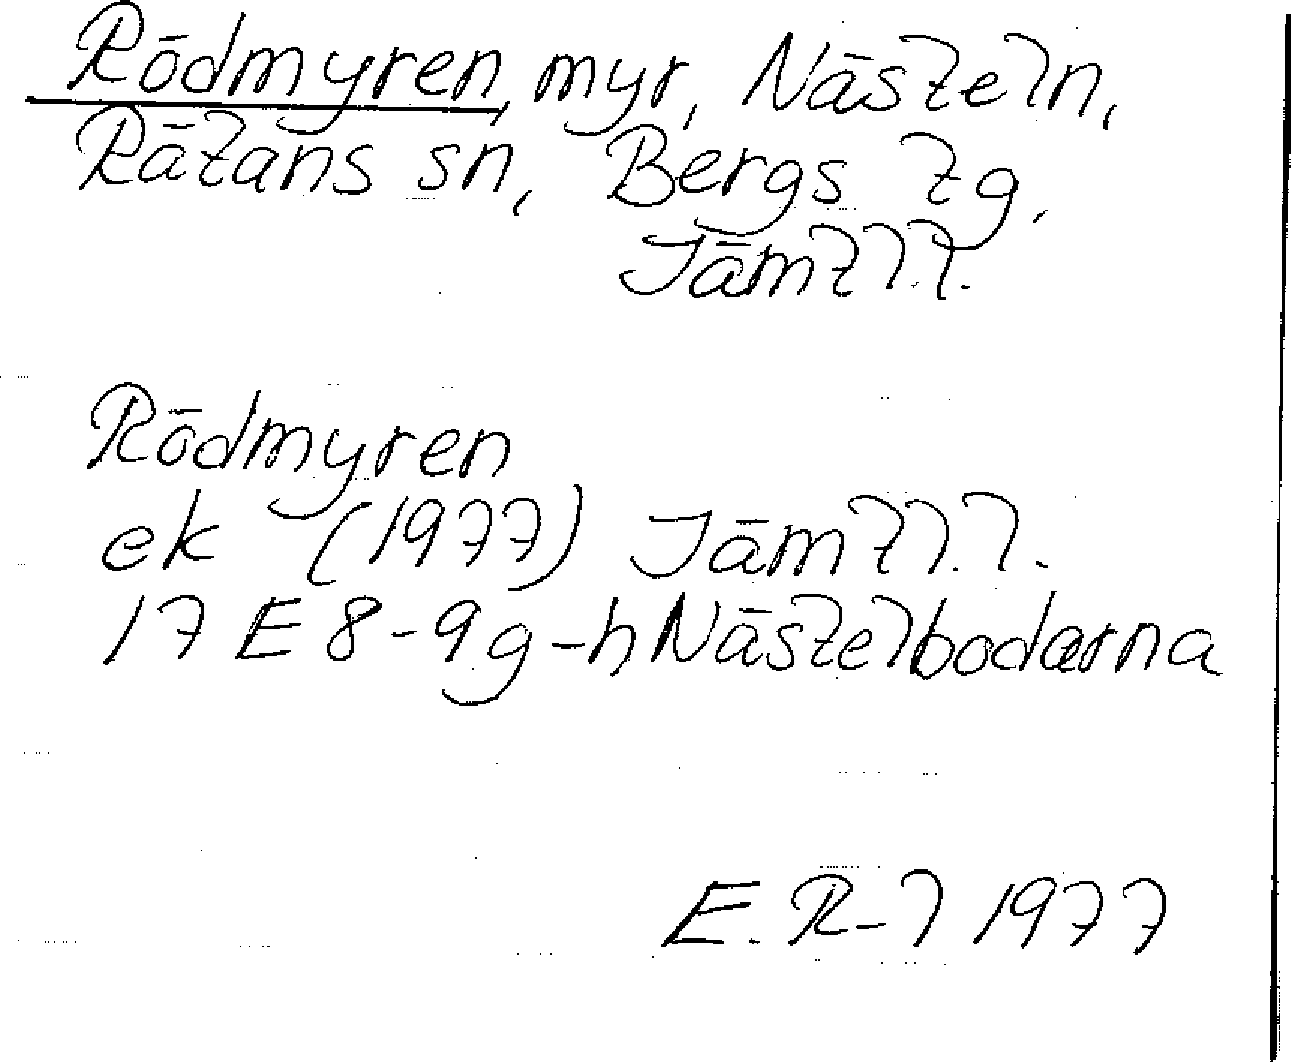 Rödmyren, myr, Nästeln,
Rätans sn, Bergs tg,
Jämtl.l.
Rödmyren
ek (1977) Jämtl.l.
17 E 8-9g-h Nästelbodarna
E. R-l 1977